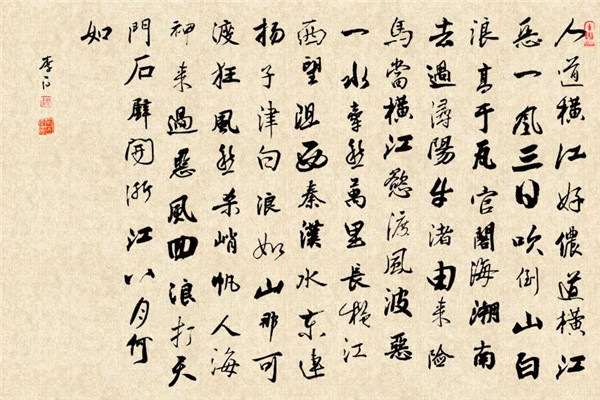 人道橫江好儂道橫江
惡一風三日吹倒山白
浪高于瓦官閣海潮南
去過潯陽牛渚由來險
馬當橫江慾渡風波惡
一水牽愁萬里長橫江
西望阻西秦漢水東連
揚子津白浪如山那可
渡狂風愁殺峭帆人海
神來過惡風回浪打天
門石壁開浙江八月何
如
李